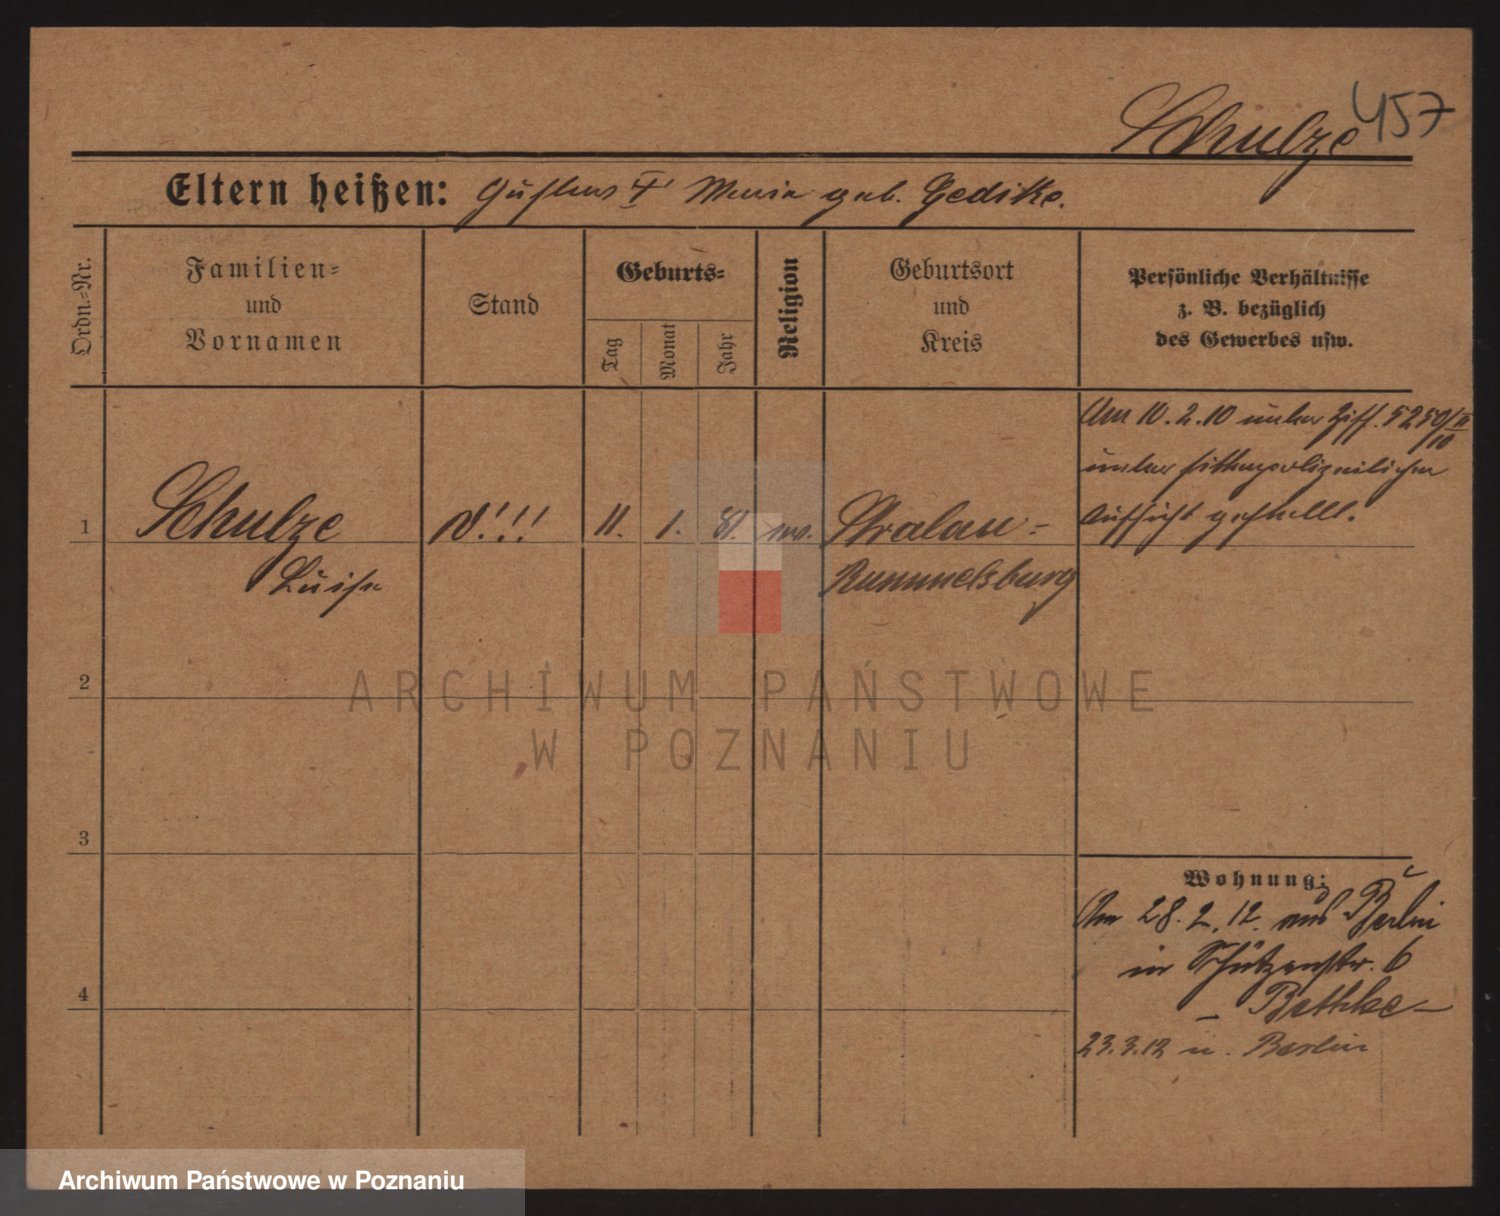 457
Schulze
Eltern heißen: Gustav † Maria geb. Gedike.
Ordn.=Nr.
Familien=
und
Vornamen
Stand
Geburts=
Tag
Monat
Jahr
Religion
Geburtsort
und
Kreis
Persönliche Verhältnisse
z. B. bezüglich
des Gewerbes usw.
Am 10. 2. 10 unter Ziff. 5250/II/10
unter sittenpolizeilicher
Aufsicht gestellt.
1
Schulze
Luise
!!!
11. 1. 81.
Stralau-
Rummelsburg
2
3
4
Wohnung:
Am 28. 2. 12. aus Berlin
in Schützenstr. 6
- Bethke -
23.3.12 n. Berlin
ARCHIWUM PAŃSTWOWE
W POZNANIU
Archiwum Państwowe w Poznaniu